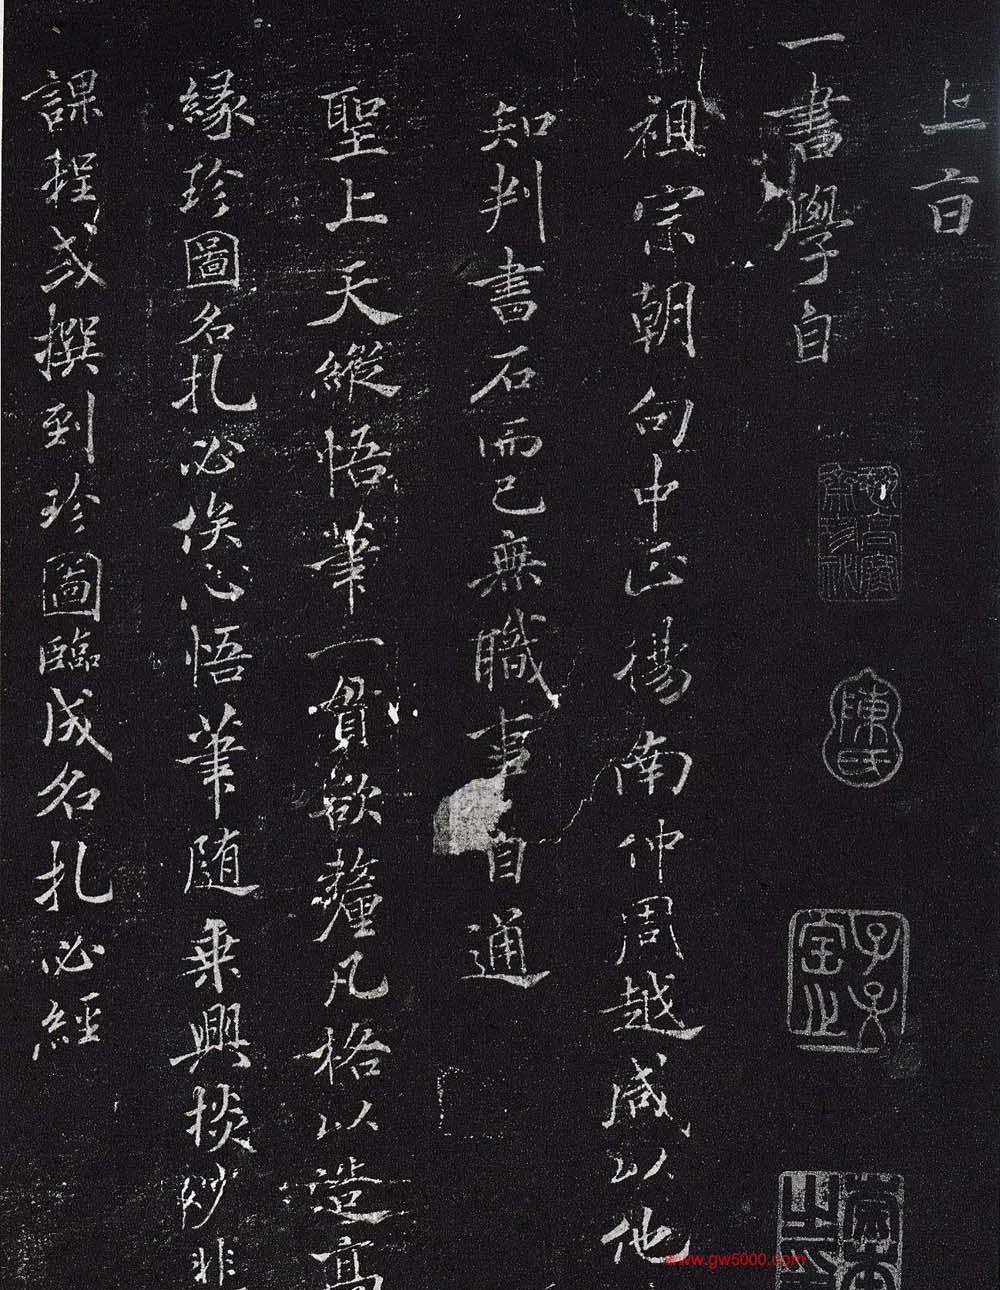 上
一書學自
祖宗朝句中正楊南仲周越咸以他
知判書石而已無職事自通
聖上天縱悟筆一貫欲釐凡格以造高
緣珍圖名札必俟心悟筆隨乘興掞妙非
課程或撰到珍圖臨成名札必經
陳氏
www.gw5000.com